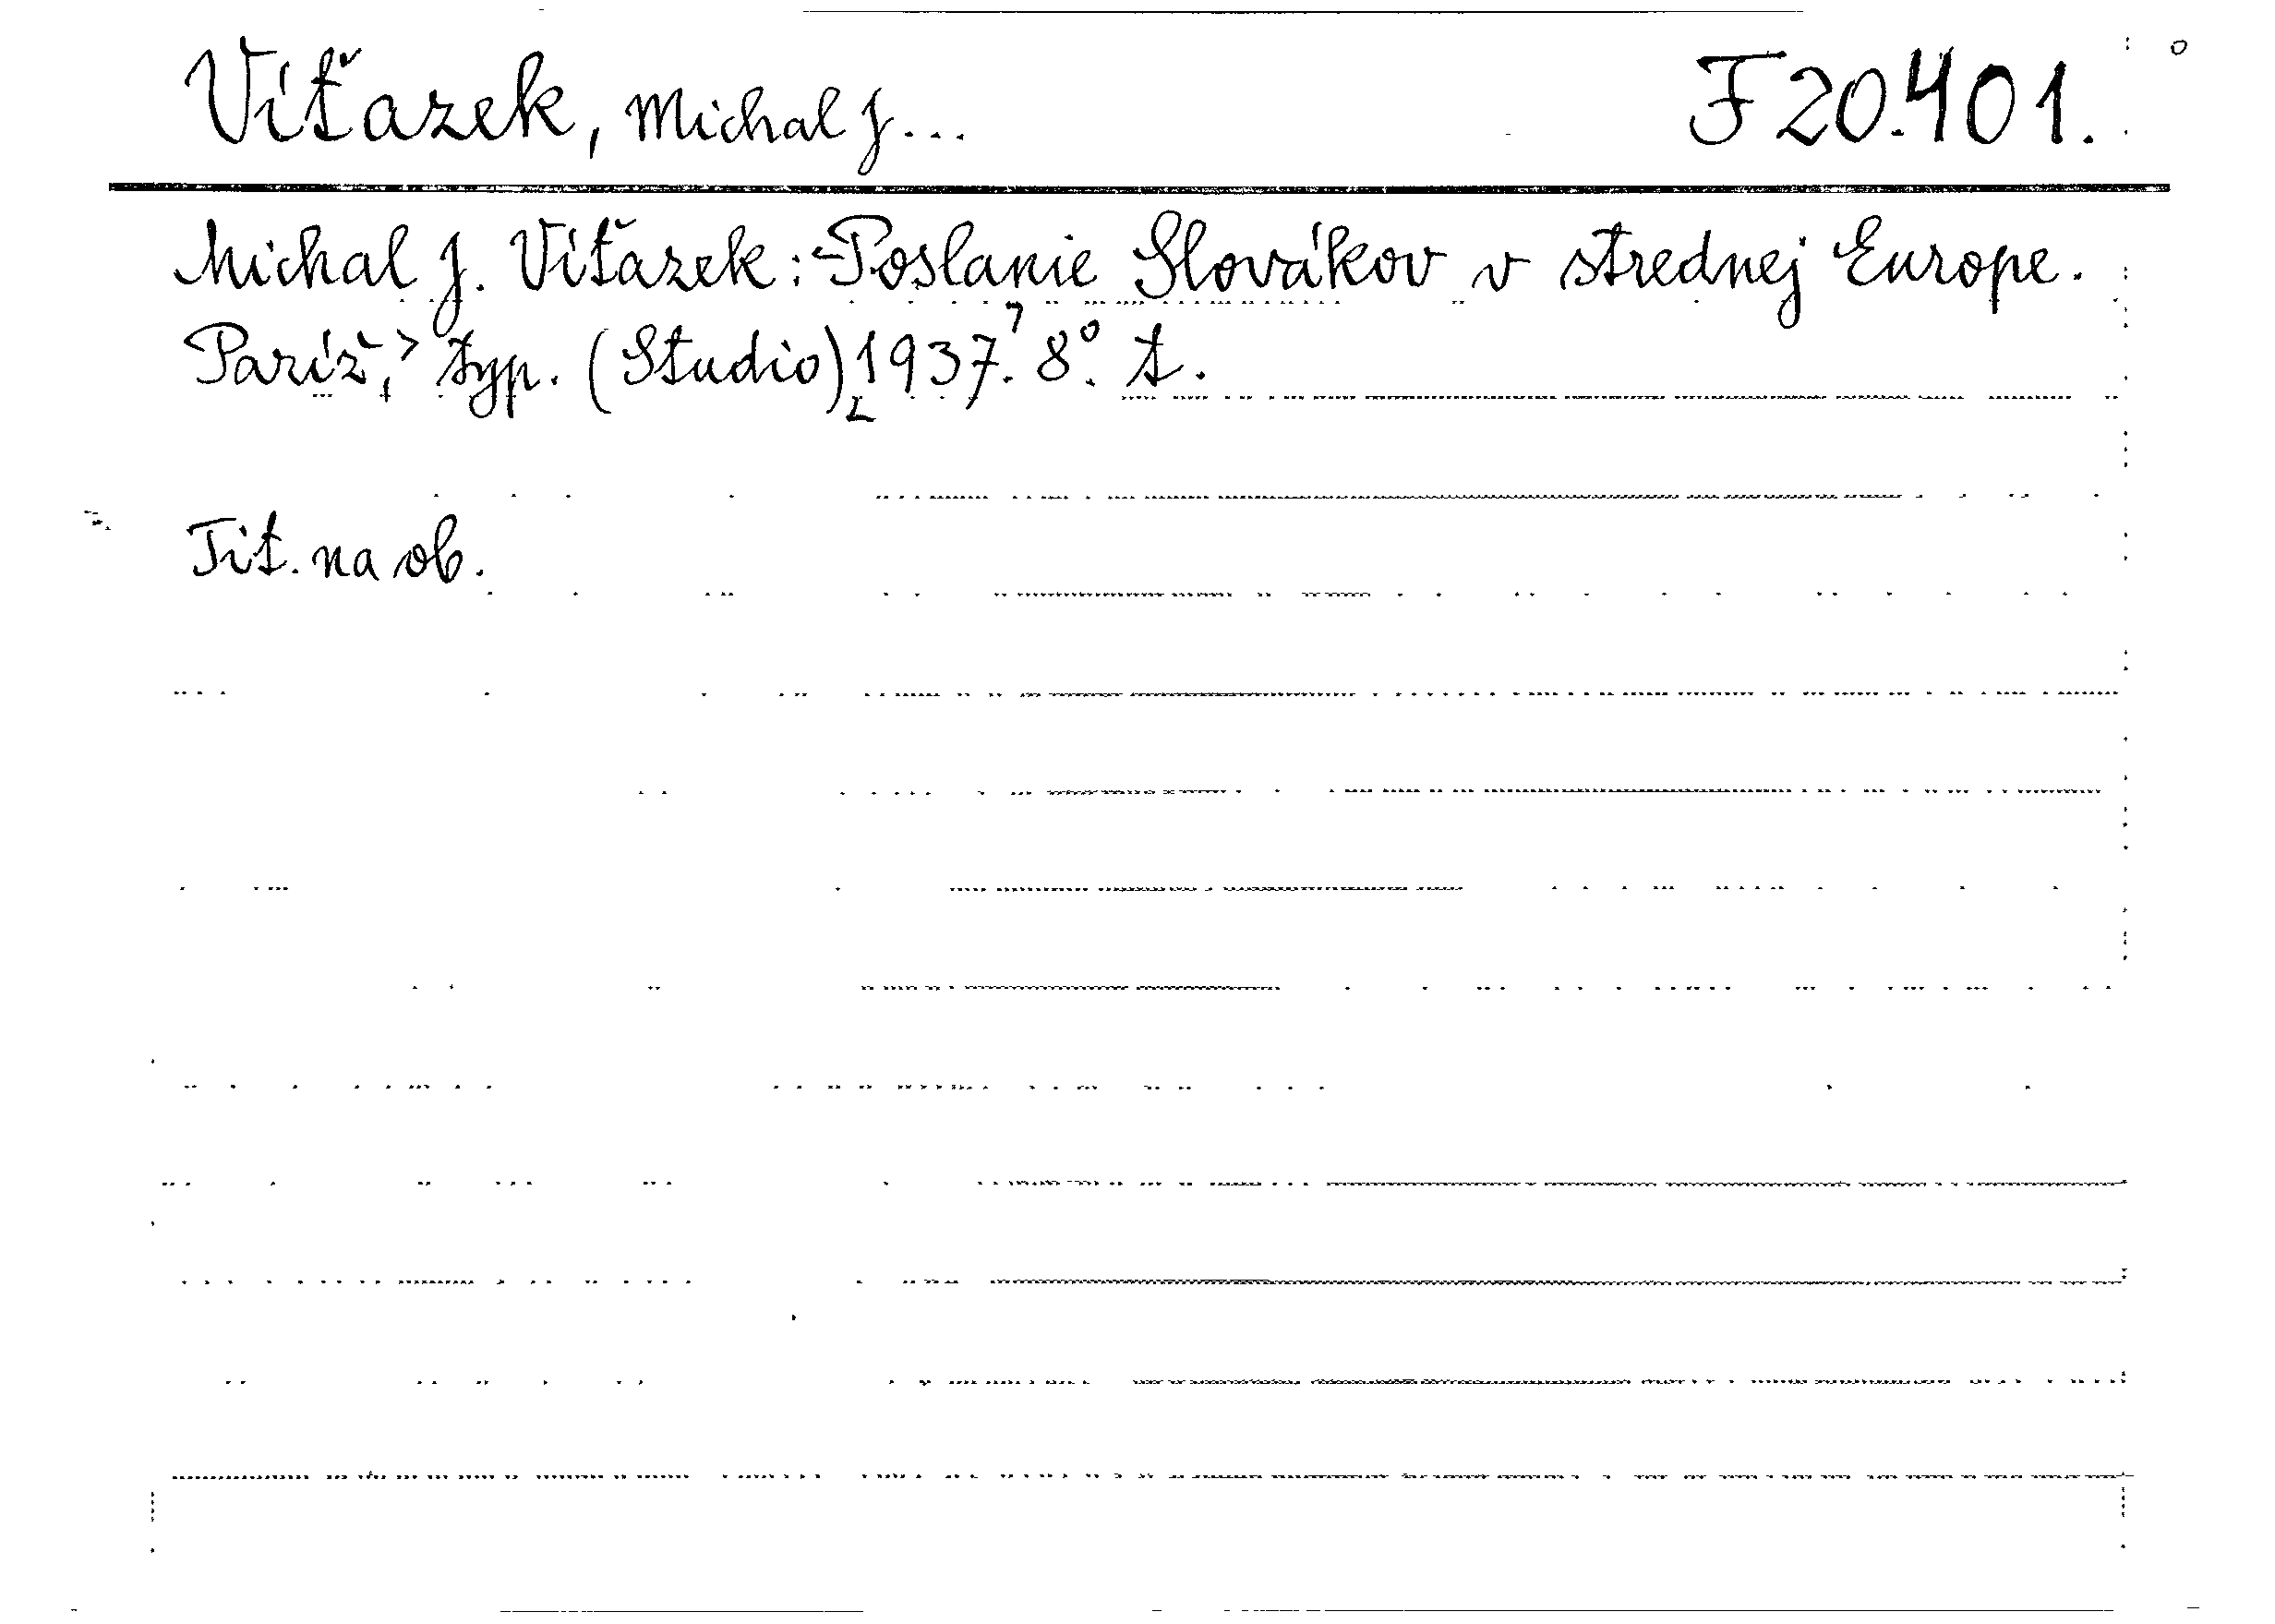 Víťazek, Michal J... F 20.401.
Michal J. Víťazek: Poslanie Slovákov v strednej Europe.
Paríž, typ. (Studio) [1937]. 8°. t.
Tit. na ob.